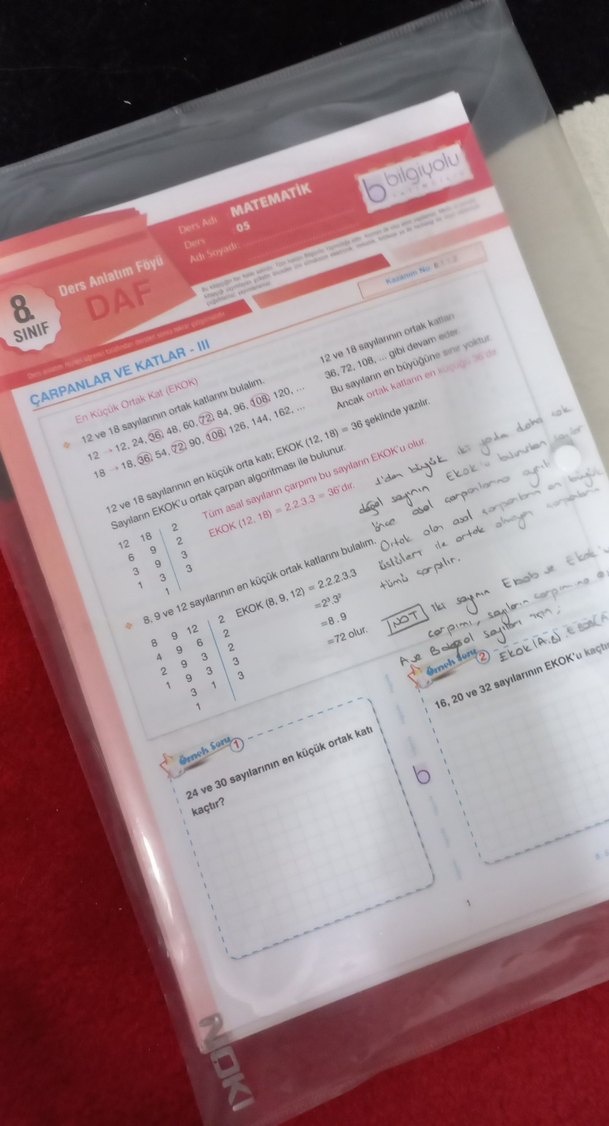 8.
SINIF
Ders Anlatım Föyü
DAF
Ders Adı MATEMATİK
Ders 05
Adı Soyadı:
bilgiyolu
YAYINCILIK
Kazanım No: 8.1.1.2
ÇARPANLAR VE KATLAR - III
En Küçük Ortak Kat (EKOK)
12 ve 18 sayılarının ortak katlarını bulalım.
12 → 12, 24, 36, 48, 60, 72, 84, 96, 108, 120, ...
18 → 18, 36, 54, 72, 90, 108, 126, 144, 162, ...
12 ve 18 sayılarının ortak katları
36, 72, 108, ... gibi devam eder.
Bu sayıların en büyüğüne sınır yoktur.
Ancak ortak katların en küçüğü 36'dır.
12 ve 18 sayılarının en küçük orta katı; EKOK (12, 18) = 36 şeklinde yazılır.
Sayıların EKOK'u ortak çarpan algoritması ile bulunur.
12 18 2
6 9 2
3 9 3
1 3 3
1
Tüm asal sayıların çarpımı bu sayıların EKOK'u olur.
EKOK (12, 18) = 2.2.3.3 = 36'dır.
1'den büyük iki yada daha çok
doğal sayının Ekok'u bulunurken sayılar
önce asal çarpanlarına ayrılır
Ortak olan asal çarpanların en büyük
üslüleri ile ortak olmayan çarpanların
tümü çarpılır.
8, 9 ve 12 sayılarının en küçük ortak katlarını bulalım.
8 9 12 2
4 9 6 2
2 9 3 2
1 9 3 3
3 1 3
1
EKOK (8, 9, 12) = 2.2.2.3.3
=2³.3²
=8 . 9
=72 olur.
NOT İki sayının Ebob ve Ekok'u
çarpımı, sayıların çarpımına
A ve B doğal sayıları için;
Ekok (A,B) . EBOB(A
Örnek Soru 1
24 ve 30 sayılarının en küçük ortak katı
kaçtır?
Örnek Soru 2
16, 20 ve 32 sayılarının EKOK'u kaçtır
b
1
NOKI